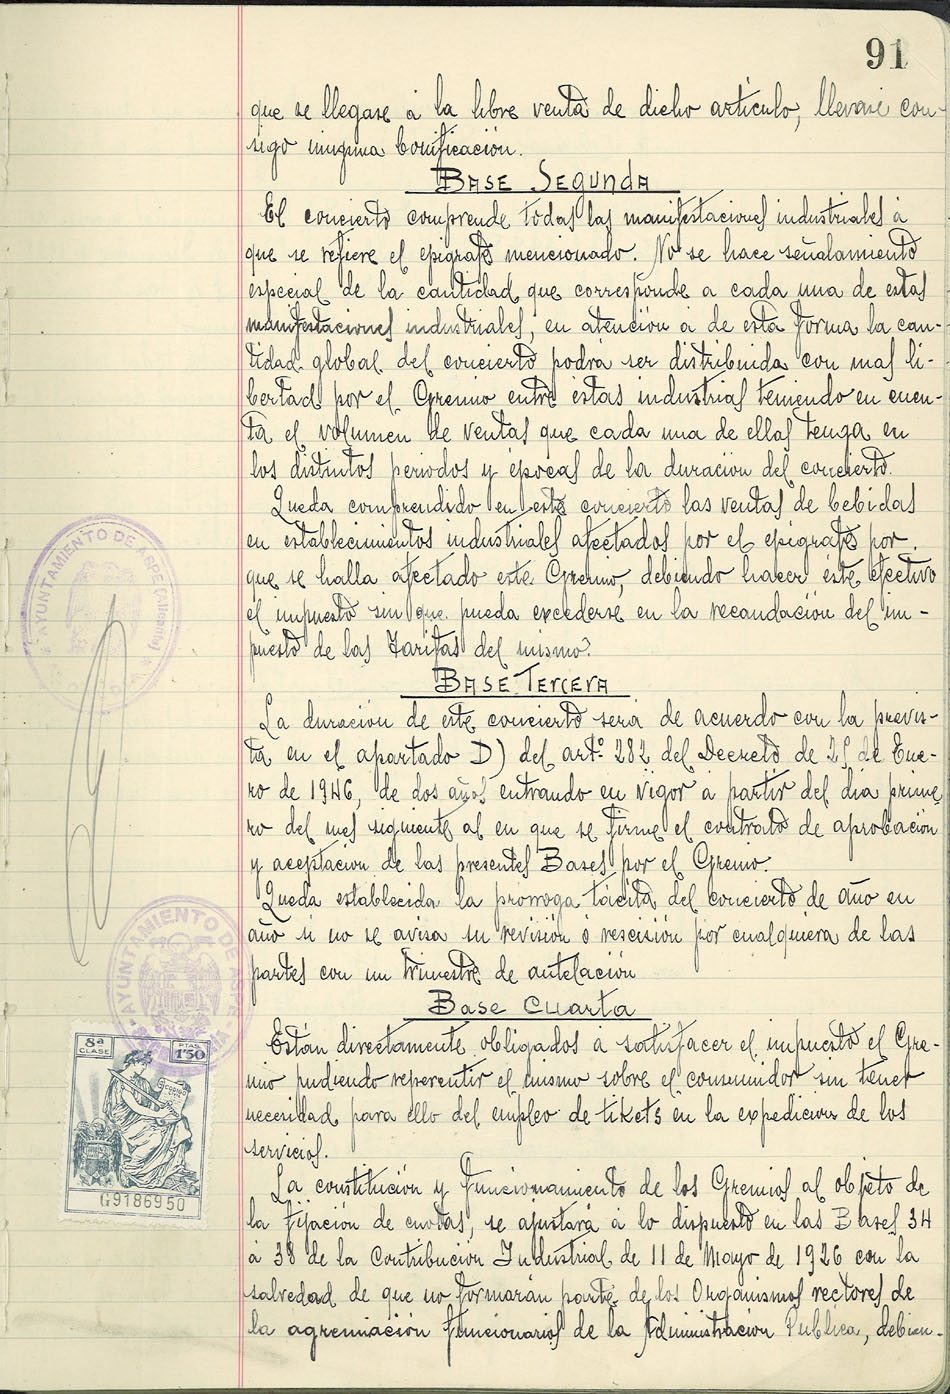 91
que se llegase á la libre venta de dicho artículo, llevase con-
sigo ninguna bonificación.
BASE SEGUNDA
El concierto comprende todas las manifestaciones industriales á
que se refiere el epígrafe mencionado. No se hace señalamiento
especial de la cantidad que corresponde a cada una de estas
manifestaciones industriales, en atención á de esta forma la can-
tidad global del concierto podrá ser distribuida con mas li-
bertad por el Gremio entre estas industrias teniendo en cuen-
ta el volumen de ventas que cada una de ellas tenga en
los distintos periodos y épocas de la duración del concierto.
Queda comprendido en este concierto las ventas de bebidas
en establecimientos industriales afectados por el epígrafe por
que se halla afectado este Gremio, debiendo hacer este efectivo
el impuesto sin que pueda excederse en la recaudación del im-
puesto de las Tarifas del mismo.
BASE TERCERA
La duración de este concierto será de acuerdo con la previs-
ta en el apartado D) del artº 282 del Decreto de 25 de Ene-
ro de 1946, de dos años entrando en vigor a partir del dia prime
ro del mes siguiente al en que se firme el contrato de aprobación
y aceptación de las presentes Bases por el Gremio.
Queda establecida la prórroga tácita del concierto de año en
año si no se avisa su revisión ó rescisión por cualquiera de las
partes con un trimestre de antelación
Base Cuarta
Están directamente obligados á satisfacer el impuesto el Gre-
mio pudiendo repercutir el mismo sobre el consumidor sin tener
necesidad para ello del empleo de tikets en la expedición de los
servicios.
La constitución y funcionamiento de los Gremios al objeto de
la fijación de cuotas, se ajustará á lo dispuesto en las Bases 34
á 38 de la Contribución Industrial de 11 de Mayo de 1926 con la
salvedad de que no formarán parte de los Organismos rectores de
la agremiación funcionarios de la Administración Pública, debien-
AYUNTAMIENTO DE ASPE (Alicante)
AYUNTAMIENTO DE ASPE
8ª
CLASE
PTAS
1'50
G9186950